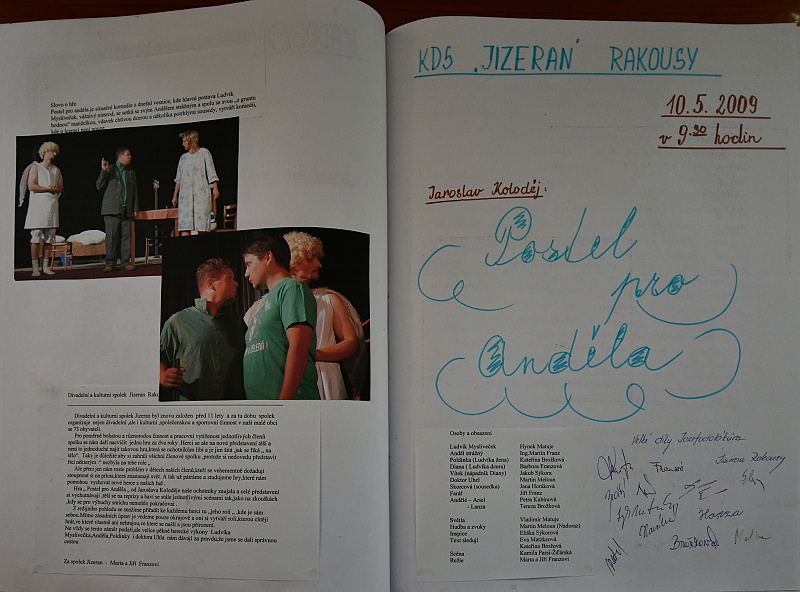 Slovo o hře
Postel pro anděla je situační komedie z dnešní vesnice, kde hlavní postava Ludvík
Mysliveček, vášnivý nimrod, se setká se svým Andělem strážným a spolu se svou „z gruntu
hodnou" manželkou, vdavek chtivou dcerou a několika potrhlými sousedy, vytváří komedii,
Divadelní a kulturní spolek Jizeran
Divadelní a kulturní spolek Jizeran byl znovu založen před 11 lety a za tu dobu spolek
organizuje nejen divadelní ,ale i kulturní ,společenskou a sportovní činnost v naší malé obci
se 73 obyvateli.
Pro poměrně bohatou a různorodou činnost a pracovní vytíženost jednotlivých členů
spolku se nám daří nacvičit jednu hru za dva roky .Herci se ale na nové představení těší a
není to jednoduché najít takovou hru,která se ochotníkům líbí a je jim šitá ,jak se říká „ na
tělo". Taky je důležité aby si zahráli všichni členové spolku ,protože si nedovedu představit
říci některým " nezbyla na tebe role „.
Ale přes jen nám roste problém v dětech našich členů,kteří se vehementně dožadují
stoupnout si na prkna,která znamenají svět. A tak už pátráme a studujeme hry,které nám
pomohou vychovat nové herce z našich řad .
Hra „ Postel pro Anděla „ od Jaroslava Koloděje naše ochotníky zaujala a celé představení
si vychutnávají ,těší se na reprízy a baví se stále jednotlivými scénami tak,jako na zkouškách
.Kdy se pro výbuchy smíchu nemohlo pokračovat .
Z režijního pohledu se snažíme přiřadit ke každému herci tu „jeho roli „ ,kde je sám
sebou.Mimo zásadních úprav je vedeme pouze okrajově a oni si vytváří roli,kterou chtějí
hrát,ve které vlastně ani nehrajou,ve které se našli a jsou přirození.
Ne vždy se tento záměr podaří,ale velice pěkné herecké výkony Ludvíka
Myslivečka,Anděla,Poldinky i doktora Uhla nám dávají za pravdu,že jsme se dali správnou
cestou
Za spolek Jizeran - Marta a Jiří Franzovi
KDS „JIZERAN" RAKOUSY
10.5. 2009
v 9.30 hodin
Jaroslav Koloděj:
Postel
pro
Anděla
Osoby a obsazení
Ludvík Mysliveček Hynek Matuje
Anděl strážný Ing.Martin Franz
Poldinka (Ludvíka žena) Kateřina Brožková
Diana ( Ludvíka dcera) Barbora Franzová
Vítek (nápadník Diany) Jakub Sýkora
Doktor Uhel Martin Meloun
Skorcová (sousedka) Jana Horáková
Farář Jiří Franz
Andělé – Ariel Petra Kubínová
- Lanza Tereza Brožková
Světla Vladimír Matuje
Hudba a zvuky Martin Meloun
Inspice Eliška Sýkorová
Text sledují Eva Matzkeová
Kateřina Brožková
Scéna Kamila Parsi-Žďárská
Režie Marta a Jiří Franzovi